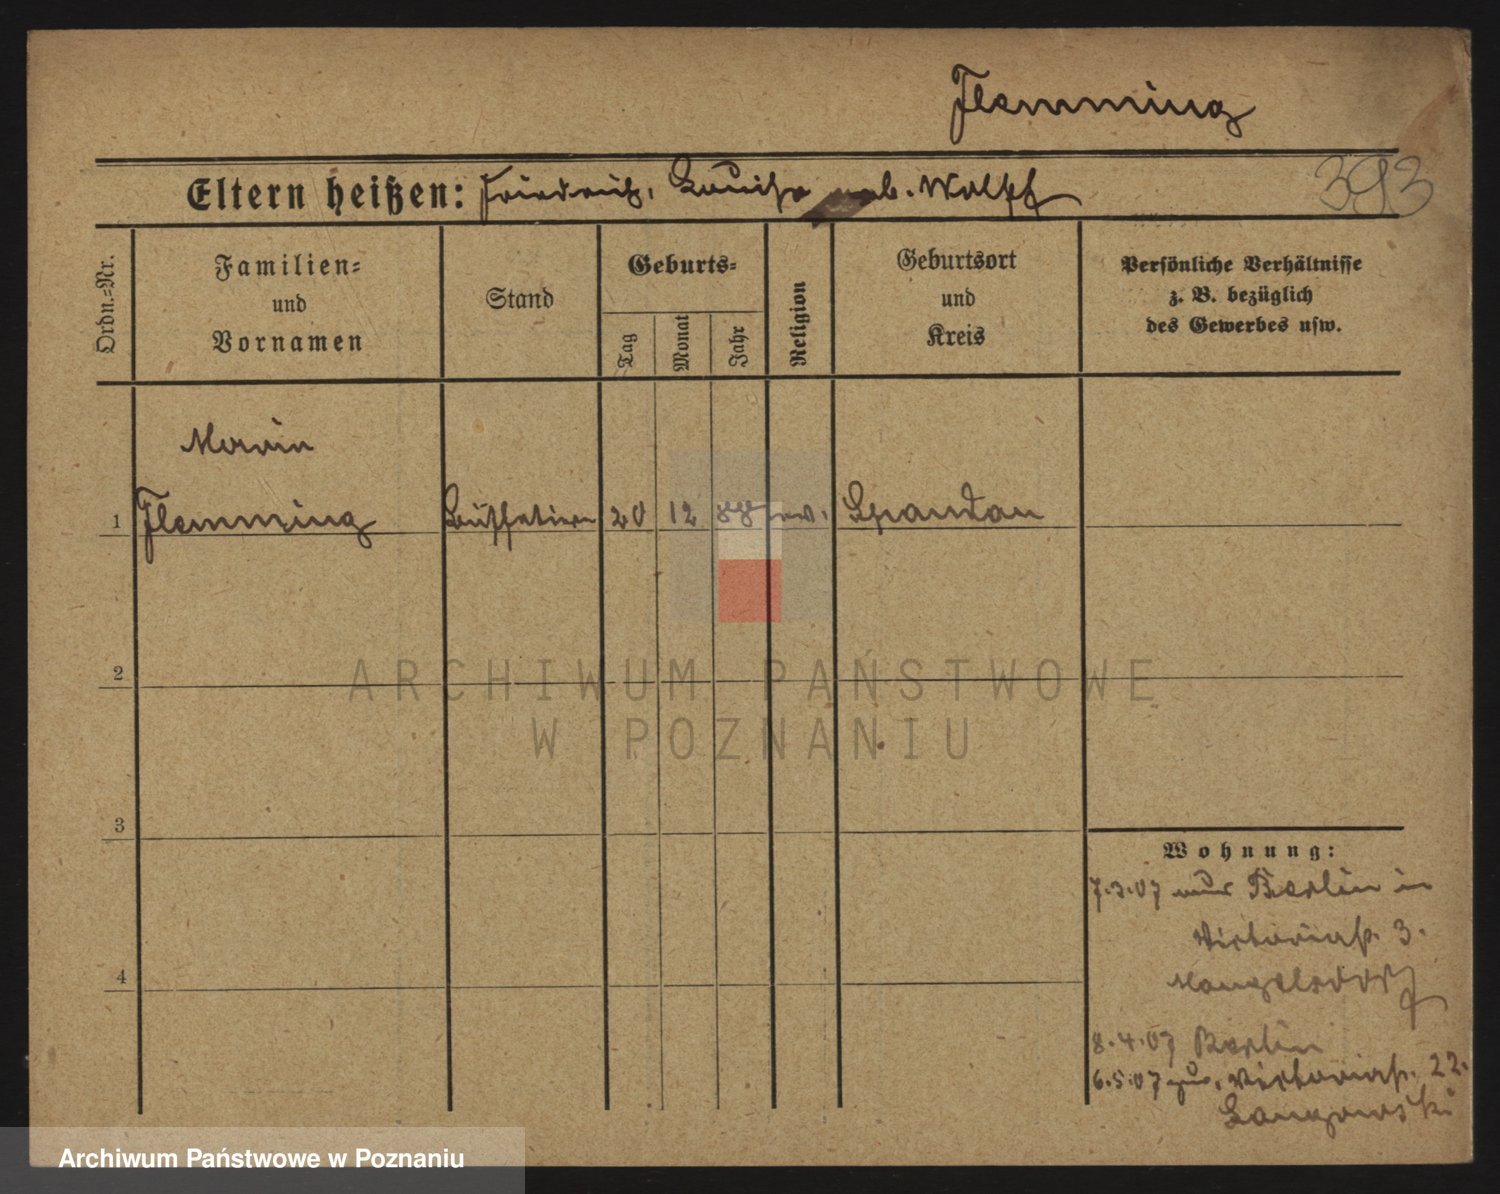 Flemming
Eltern heißen: Friedrich, Louise geb. Wolff
393
Ordn.=Nr.
Familien=
und
Vornamen
Stand
Geburts=
Tag
Monat
Jahr
Religion
Geburtsort
und
Kreis
Persönliche Verhältnisse
z. B. bezüglich
des Gewerbes usw.
Marie
1 Flemming 20 12 88 ev. Spandau
2
ARCHIWUM PAŃSTWOWE
W POZNANIU
3
Wohnung:
7.3.07 aus Berlin in
Victoriastr. 3.
Mangelsdorf
4
8.4.07 Berlin
6.5.07 zur. Victoriastr. 22.
Archiwum Państwowe w Poznaniu